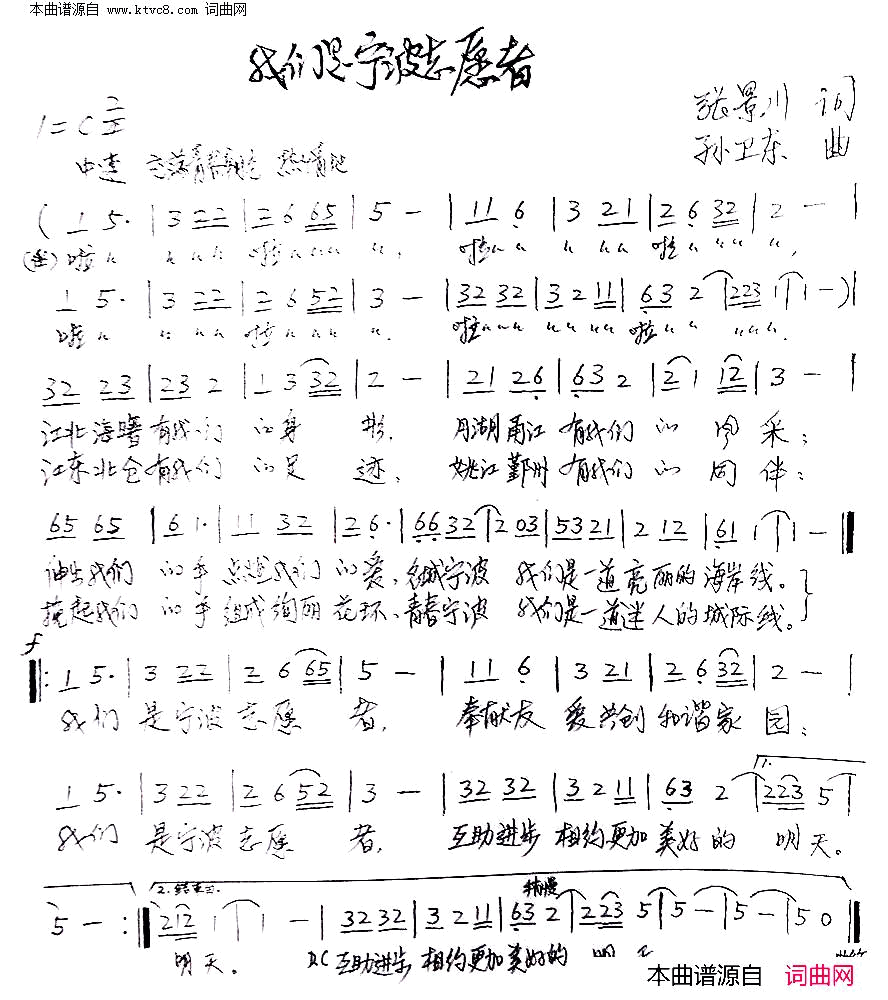 本曲谱源自 www.ktvc8.com 词曲网
我们是宁波志愿者
张景川 词
1=C 2/4
孙卫东 曲
中速 热情地
( 1 5· | 3 22 | 2 6 65 | 5 — | 11 6 | 3 21 | 2 6 32 | 2 — |
啦 〃 〃 〃〃 啦〃〃〃 〃, 啦〃〃 〃 〃〃 啦〃〃〃 〃,
1 5· | 3 22 | 2 6 52 | 3 — | 32 32 | 3 2 11 | 63 2 | 223 1 | 1 — ) |
啦 〃 〃 〃〃 啦〃〃〃 〃. 啦〃〃〃 〃〃〃〃 啦〃〃 〃〃〃.
32 23 | 23 2 | 1 3 32 | 2 — | 21 26 | 63 2 | 2 1 12 | 3 — |
江北海曙有我们 的身 影, 月湖甬江 有我们 的 风 采;
江东北仑有我们 的足 迹, 姚江鄞州 有我们 的 同 伴;
65 65 | 61· | 11 32 | 26· | 66 32 | 2 03 | 53 21 | 2 12 | 61 1 | 1 — ‖
伸出我们 的手 点燃我们 的爱,名城宁波 我们是一道亮丽的海岸线。
挽起我们 的手 组成绚丽 花环,青春宁波 我们是一道迷人的城际线。
f
‖: 1 5· | 3 22 | 2 6 65 | 5 — | 11 6 | 3 21 | 2 6 32 | 2 — |
我们 是宁波 志愿 者, 奉献友 爱共创 和谐家 园;
1.
1 5· | 3 22 | 2 6 52 | 3 — | 32 32 | 3 2 11 | 63 2 | 223 5 |
我们 是宁波 志愿 者, 互助进步 相约更加美好的 明天。
2. 结束句. 稍慢
5 — :‖ 212 1 | 1 — | 32 32 | 3 2 11 | 63 2 | 223 5 | 5 — | 5 — | 5 0 ‖
明天。 D.C 互助进步 相约更加美好的 明天
本曲谱源自 词曲网